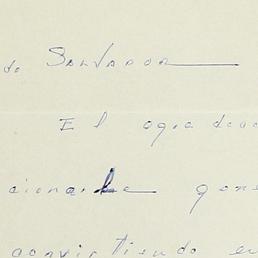 do Salvador
El ogro deso
cionable gone
convirtiendo en